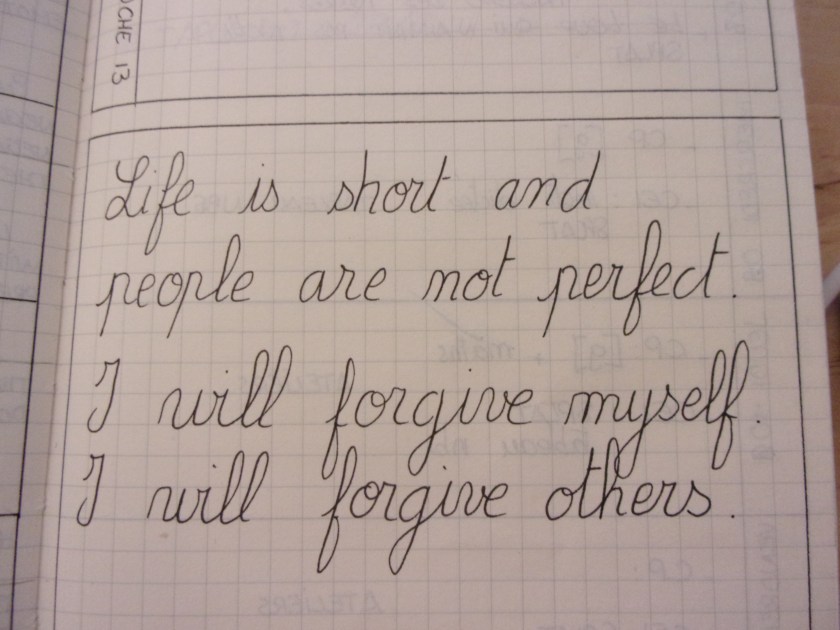 OCHE 13
Life is short and
people are not perfect.
I will forgive myself.
I will forgive others.